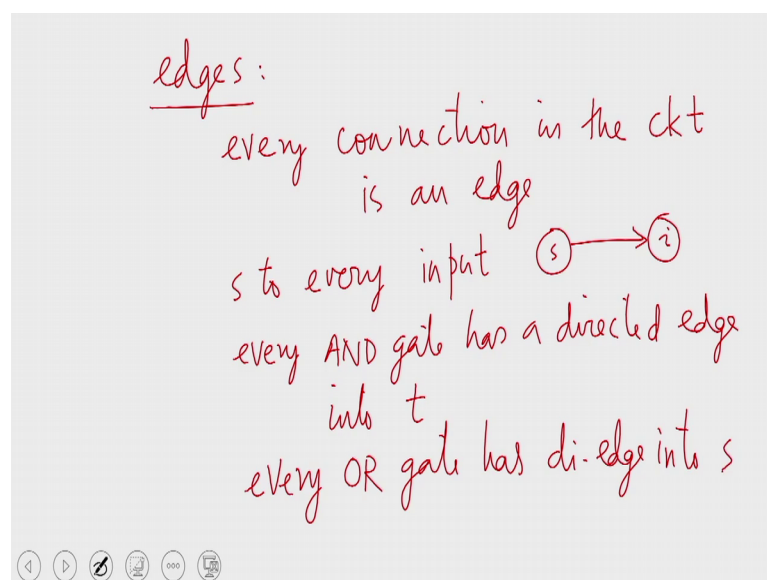 edges:
every connection in the ckt
is an edge
s to every input s i
every AND gate has a directed edge
into t
every OR gate has di-edge into s